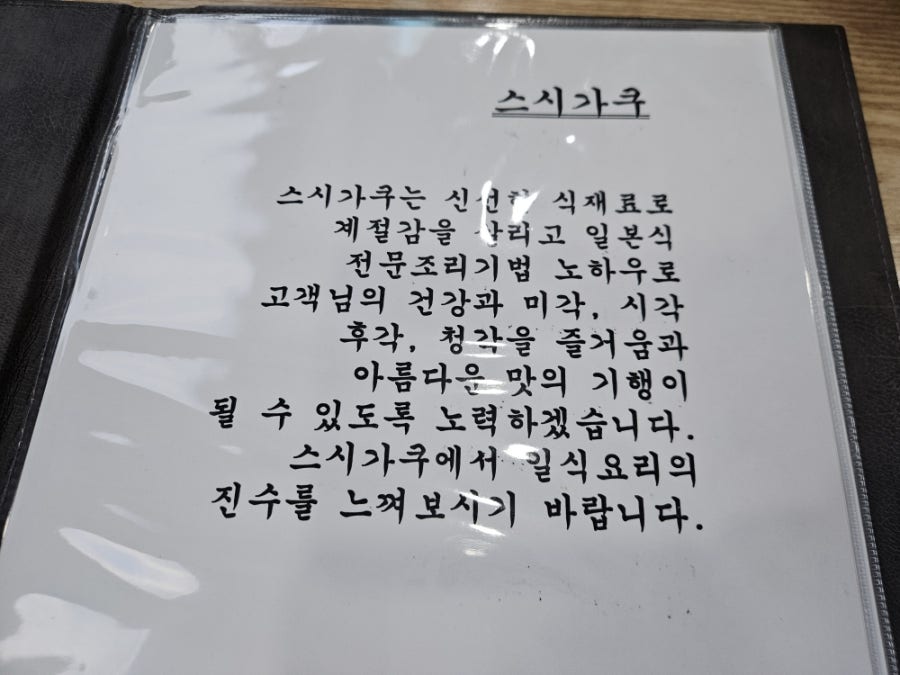 스시가쿠
스시가쿠는 신선한 식재료로
계절감을 살리고 일본식
전문조리기법 노하우로
고객님의 건강과 미각, 시각
후각, 청각을 즐거움과
아름다운 맛의 기행이
될 수 있도록 노력하겠습니다.
스시가쿠에서 일식요리의
진수를 느껴보시기 바랍니다.